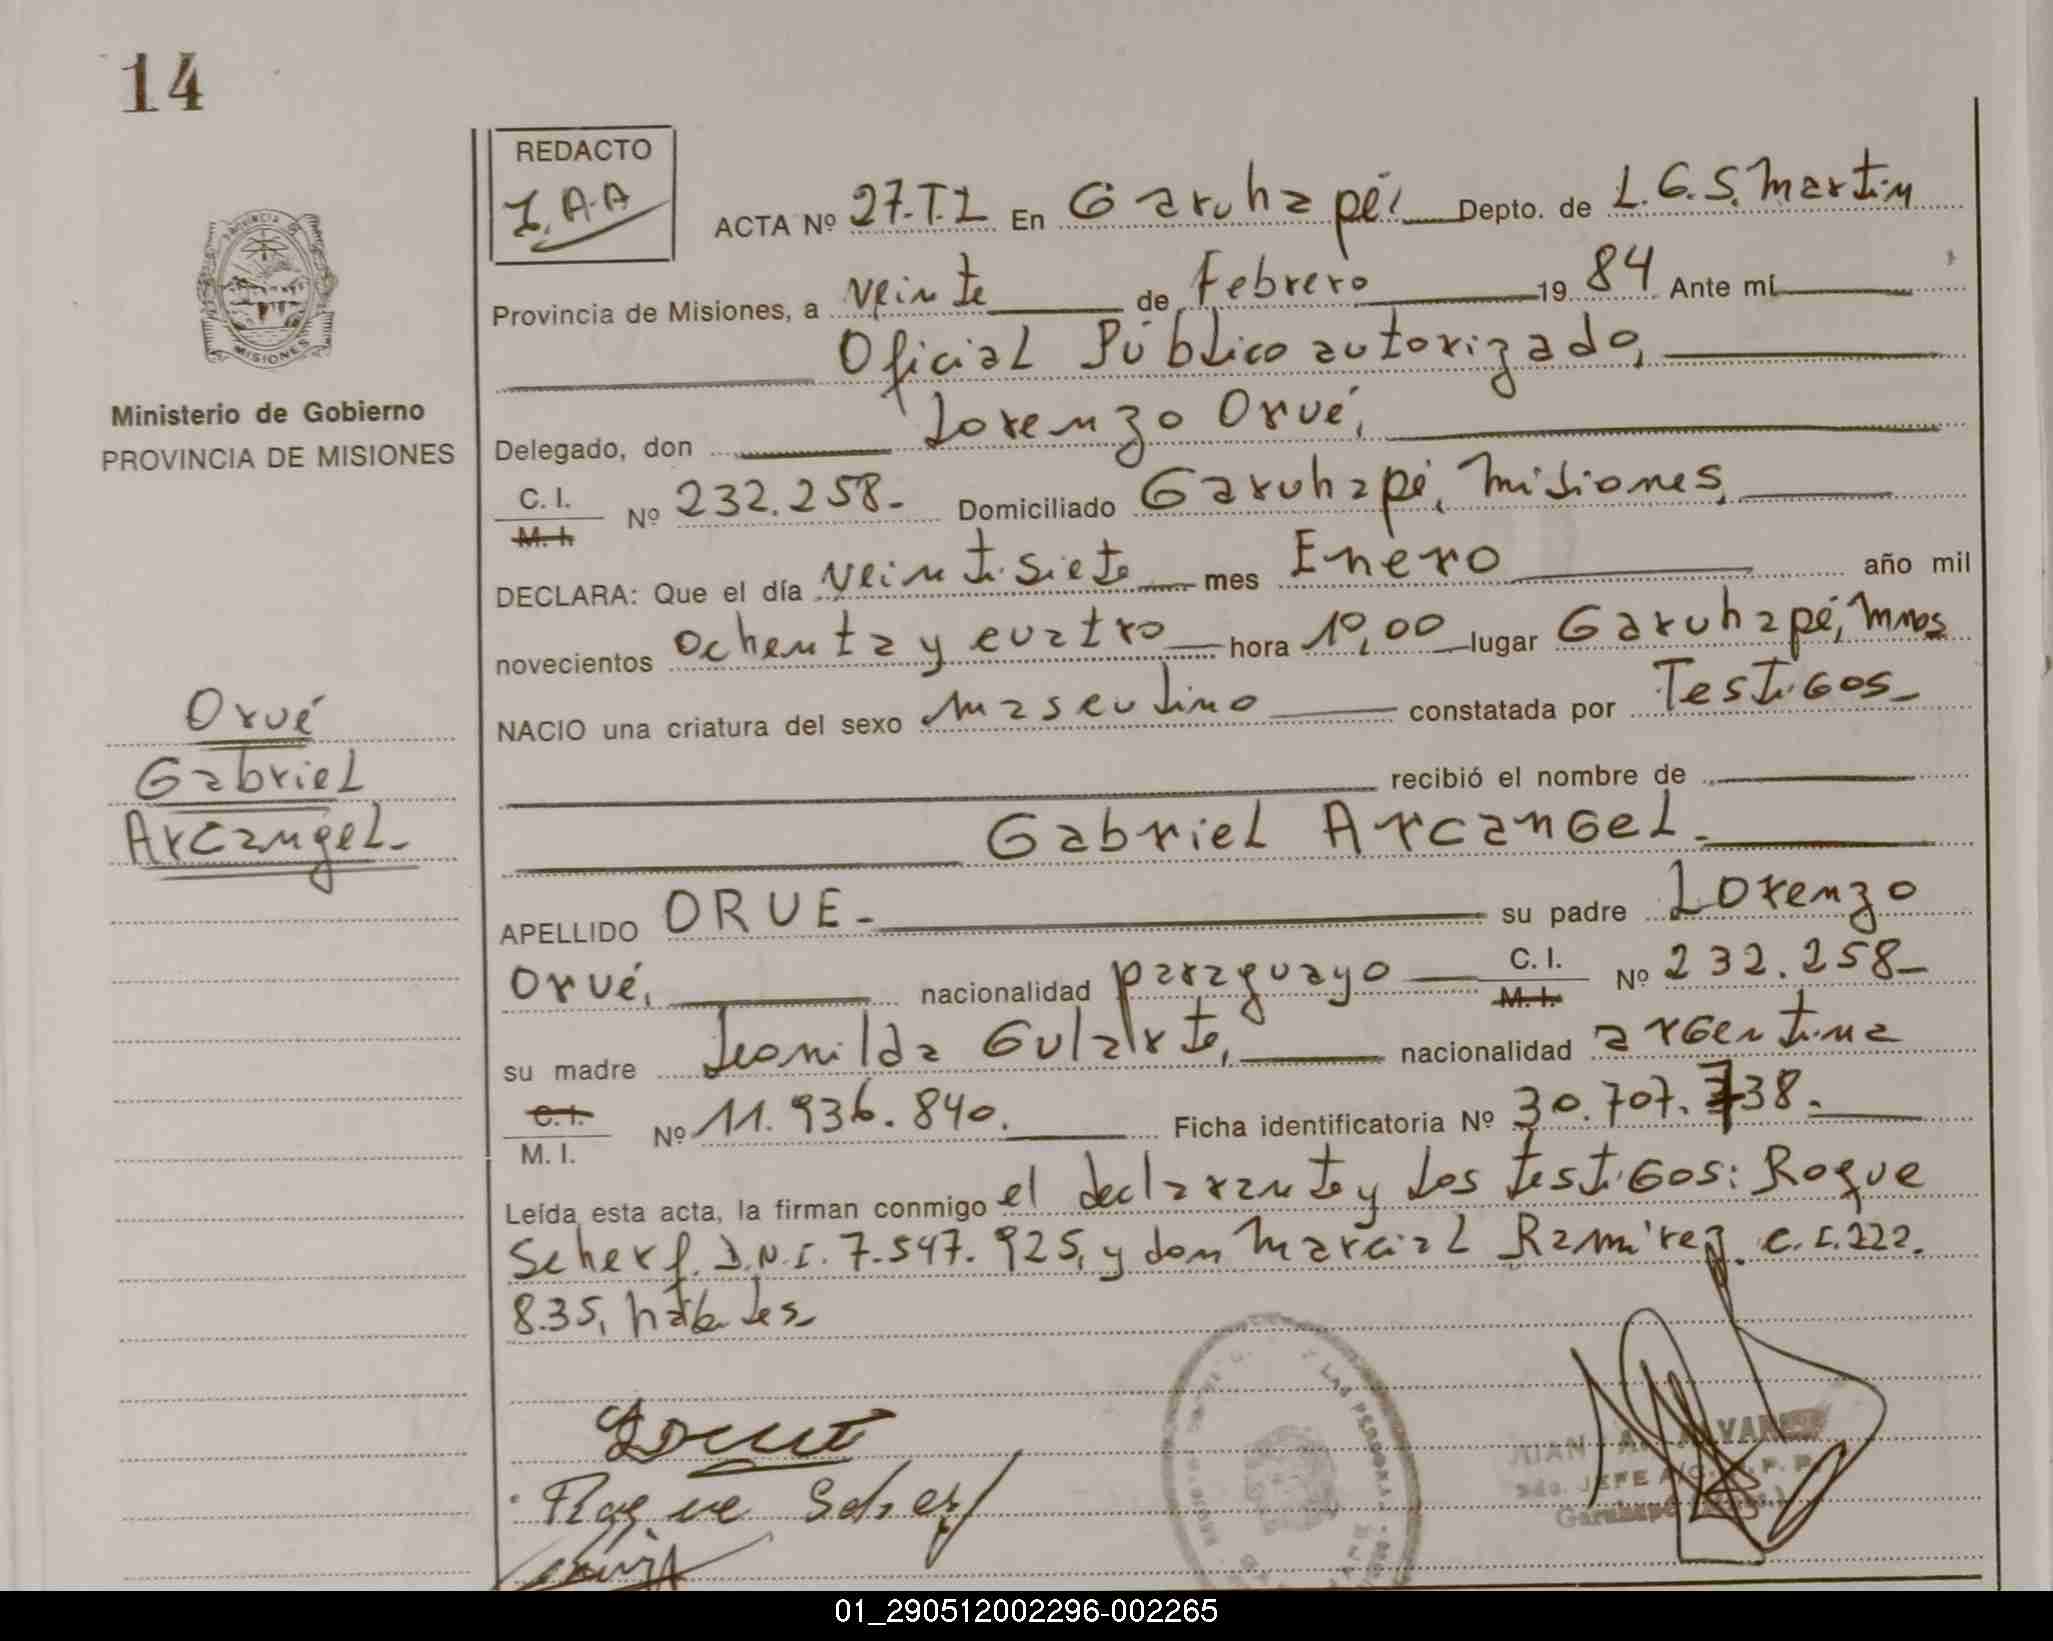 14
REDACTO
J.A.A
ACTA Nº 27.T.I En Garuhapé, Depto. de L.G.S.Martin
Provincia de Misiones, a veinte de Febrero 1984 Ante mí
Oficial Público autorizado,
Delegado, don Lorenzo Orué,
C. I.
M. I. Nº 232.258- Domiciliado Garuhapé, Misiones,
DECLARA: Que el día veintisiete mes Enero año mil
novecientos ochenta y cuatro hora 10,00 lugar Garuhapé, Mnes
NACIO una criatura del sexo masculino constatada por Testigos-
recibió el nombre de
Gabriel Arcangel-
APELLIDO ORUE- su padre Lorenzo
Orué, nacionalidad paraguayo C. I.
M. I. Nº 232.258-
su madre Leonilda Gularte, nacionalidad argentina
C. I.
M. I. Nº 11.936.840. Ficha identificatoria Nº 30.707.738.-
Leída esta acta, la firman conmigo el declarante y los testigos: Roque
Scherf. D.N.I. 7.547.925, y don Marcial Ramirez C.I.222.
835, hábiles
Roque Scherf
JUAN A. ALVAREZ
JEFE
Garuhapé
PROVINCIA DE
MISIONES
Ministerio de Gobierno
PROVINCIA DE MISIONES
Orué
Gabriel
Arcangel-
LAS PERSONAS
01_290512002296-002265